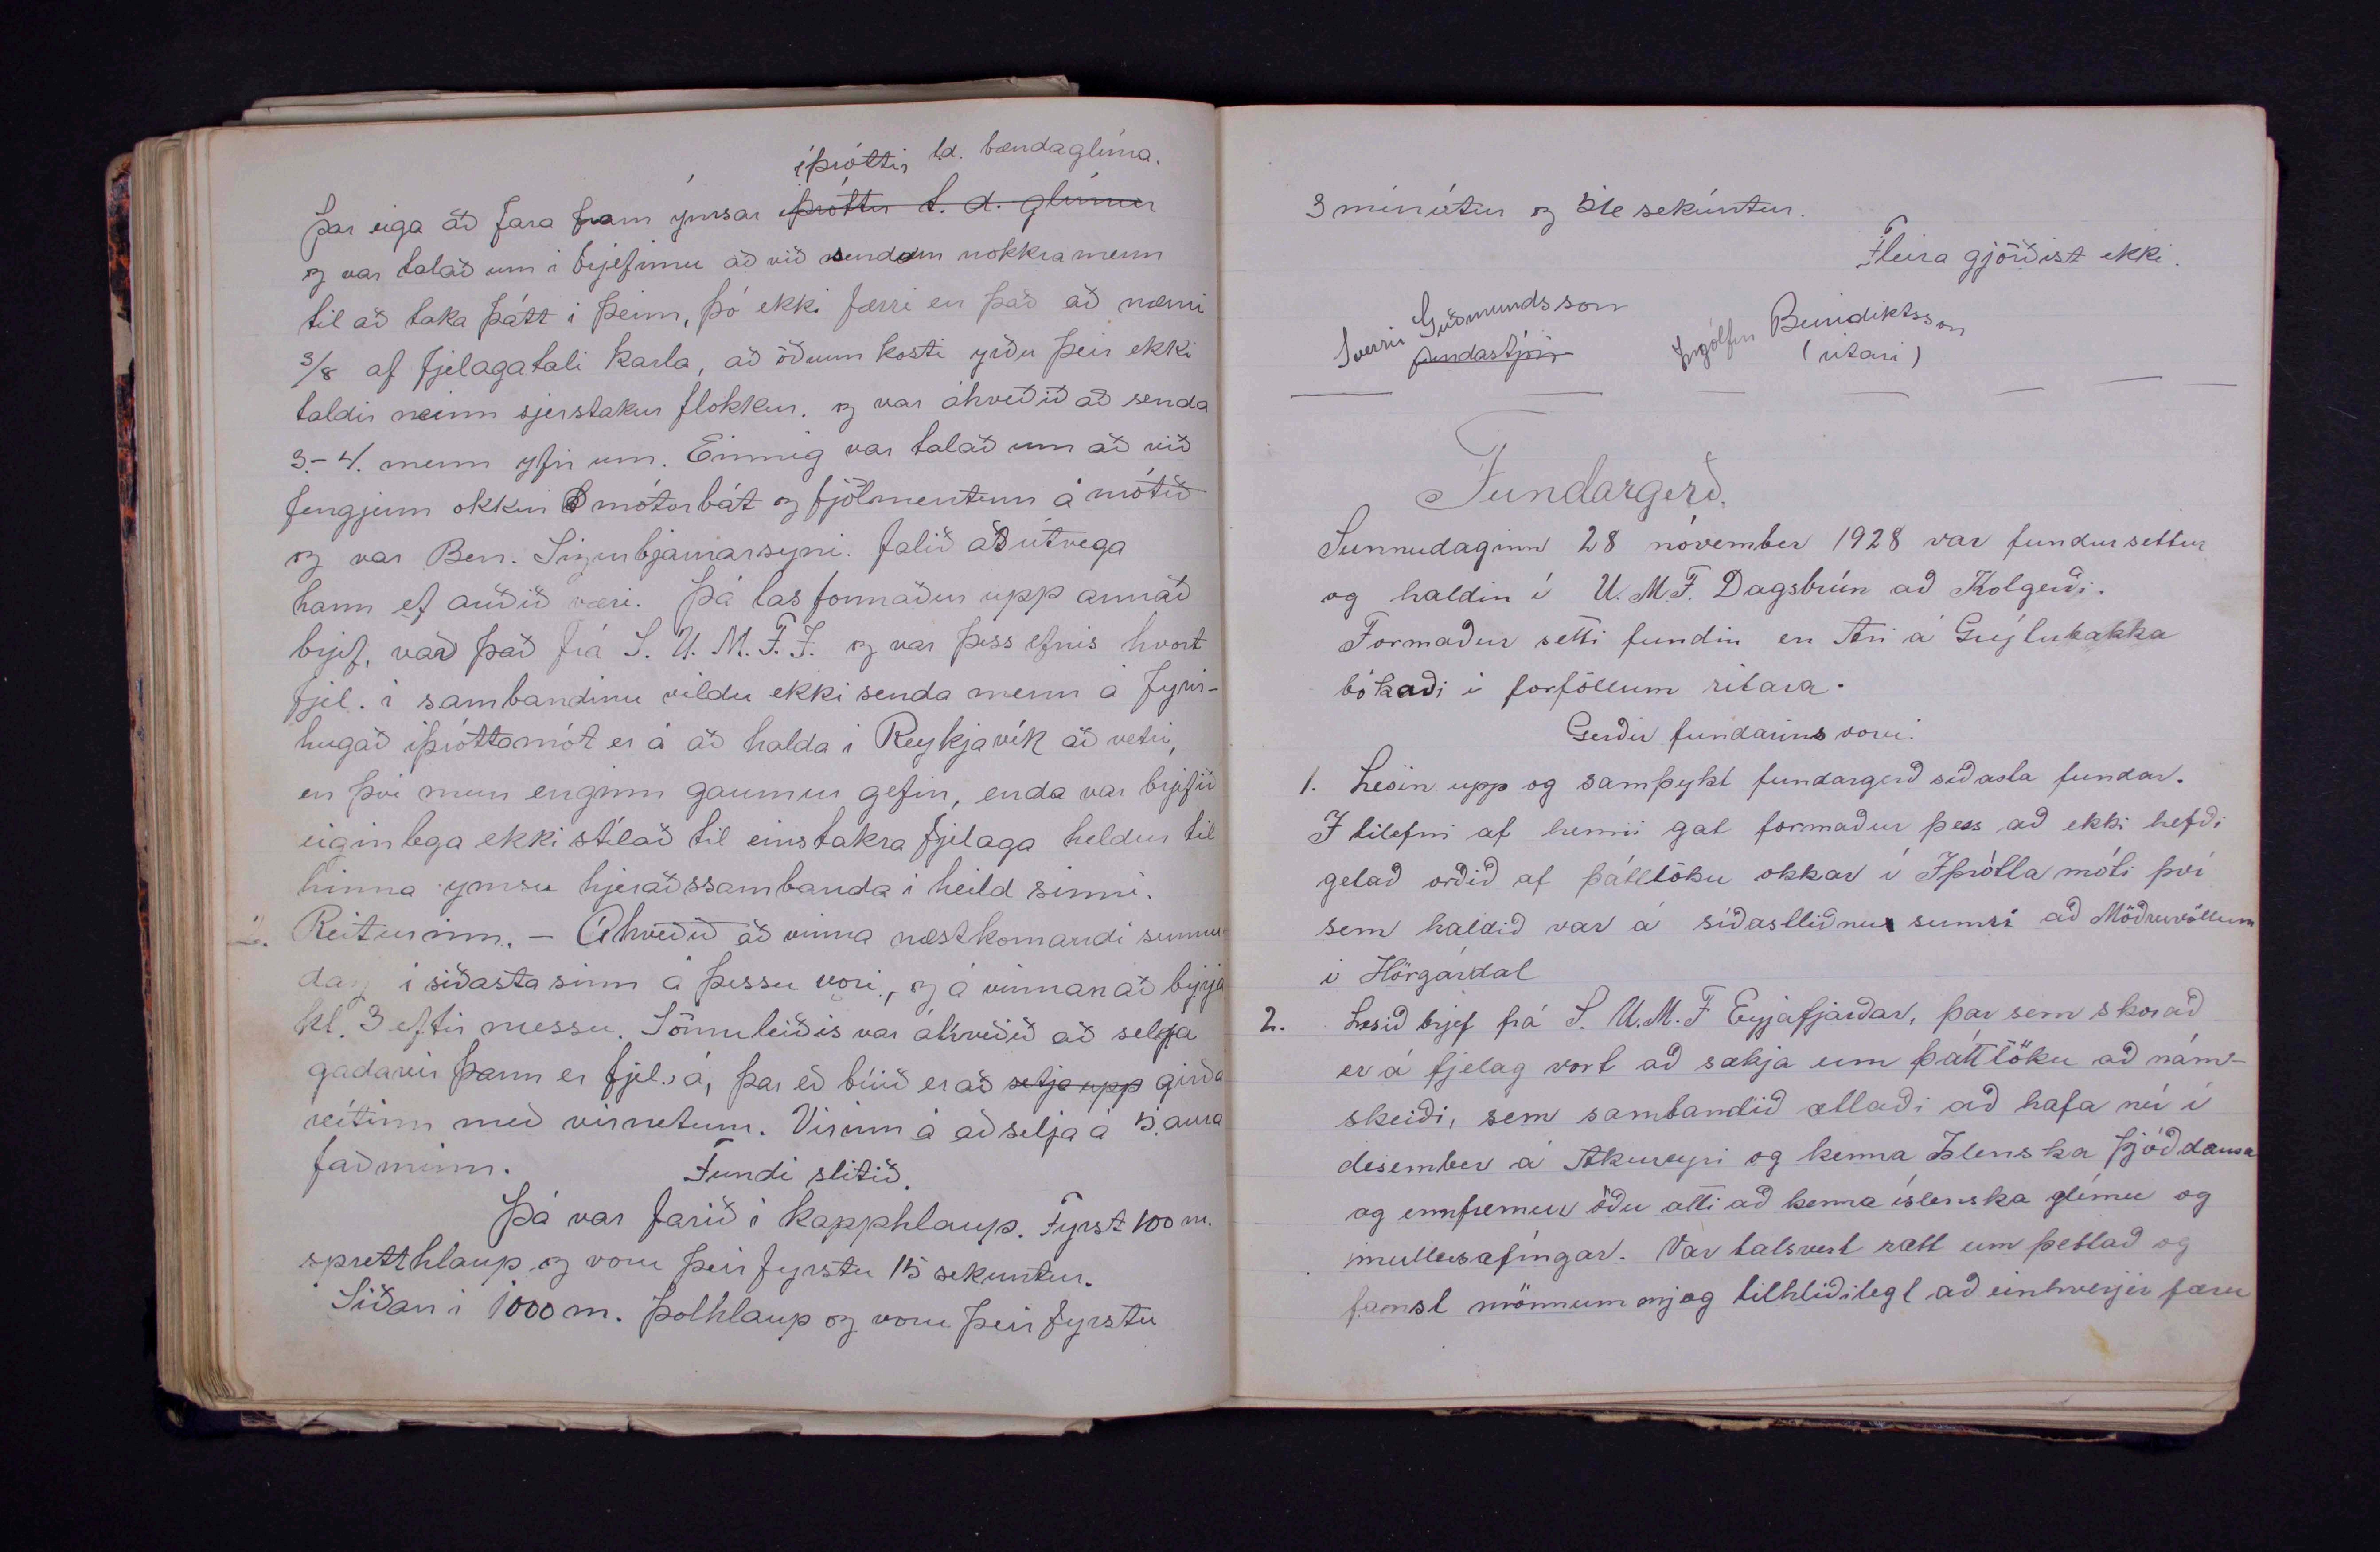 íþróttir t.d. bændaglíma.
Þar eiga að fara fram ýmsar íþróttir t. d. glímur
og var talað um í brjefinu að við sendum nokkra menn
til að taka þátt í þeim, þó ekki færri en það að næmi
3/8 af fjelagatali karla, að öðrum kosti yrðu þeir ekki
taldir neinn sjerstakur flokkur. og var ákveðið að senda
3.-4. menn yfir um. Einnig var talað um að við
fengjum okkur mótorbát og fjölmentum á mótið
og var Ben. Sigurbjarnarsyni. falið að útvega
hann ef auðið væri. Þá las formaður upp annað
brjef, var það frá S. U. M. F. Í. og var þess efnis hvort
fjel. í sambandinu vildu ekki senda menn á fyrir-
hugað íþróttamót er á að halda í Reykjavík að vetri,
en því mun enginn gaumur gefin, enda var brjefið
eiginlega ekki stílað til einstakra fjelaga heldur til
hinna ýmsu hjeraðssambanda í heild sinni.
2. Reiturinn. - Ákveðið að vinna næstkomandi sunnu-
dag í síðasta sinn á þessu vori, og á vinnan að byrja
kl. 3 eftir messu. Sömuleiðis var ákveðið að selja
gadavír þann er fjel. á, þar eð búið er að setja upp girða
reitinn með vírnetum. Vírinn á að selja á 5. aura
faðminn. Fundi slitið.
Þá var farið í kapphlaup. Fyrst 100 m.
spretthlaup og voru þeir fyrstu 15 sekuntur.
Síðan í 1000 m. þolhlaup og voru þeir fyrstu
3 mínútur og sekúntur.
Fleira gjörðist ekki.
Sverrir Guðmundsson Ingólfur Benediktsson
fundastjóri (ritari)
Fundargerð.
Sunnudaginn 28 nóvember 1928 var fundur settur
og haldin í U. M. F. Dagsbrún að Kolgerði.
Formaður setti fundin en Ari á Grýlubakka
bókaði í forföllum ritara.
Gerðir fundarins voru:
1. Lesin upp og samþykt fundargerð síðasta fundar.
I tilefni af henni gat formaður þess að ekki hefði
getað orðið af þátttöku okkar í Iþrótta móti því
sem haldið var á síðastliðnu sumri að Möðruvöllum
í Hörgárdal
2. Lesið brjef frá S. U. M. F Eyjafjarðar, þar sem skorað
er á fjelag vort að sækja um þátttöku að nám-
skeiði, sem sambandið ætlaði að hafa nú í
desember á Akureyri og kenna Islenska þjóðdansa
og ennfremur átti að kenna íslenska glímu og
mullersæfingar. Var talsvert rætt um þettað og
fanst mönnum mjög tilhlíðilegt að einhverjir færu